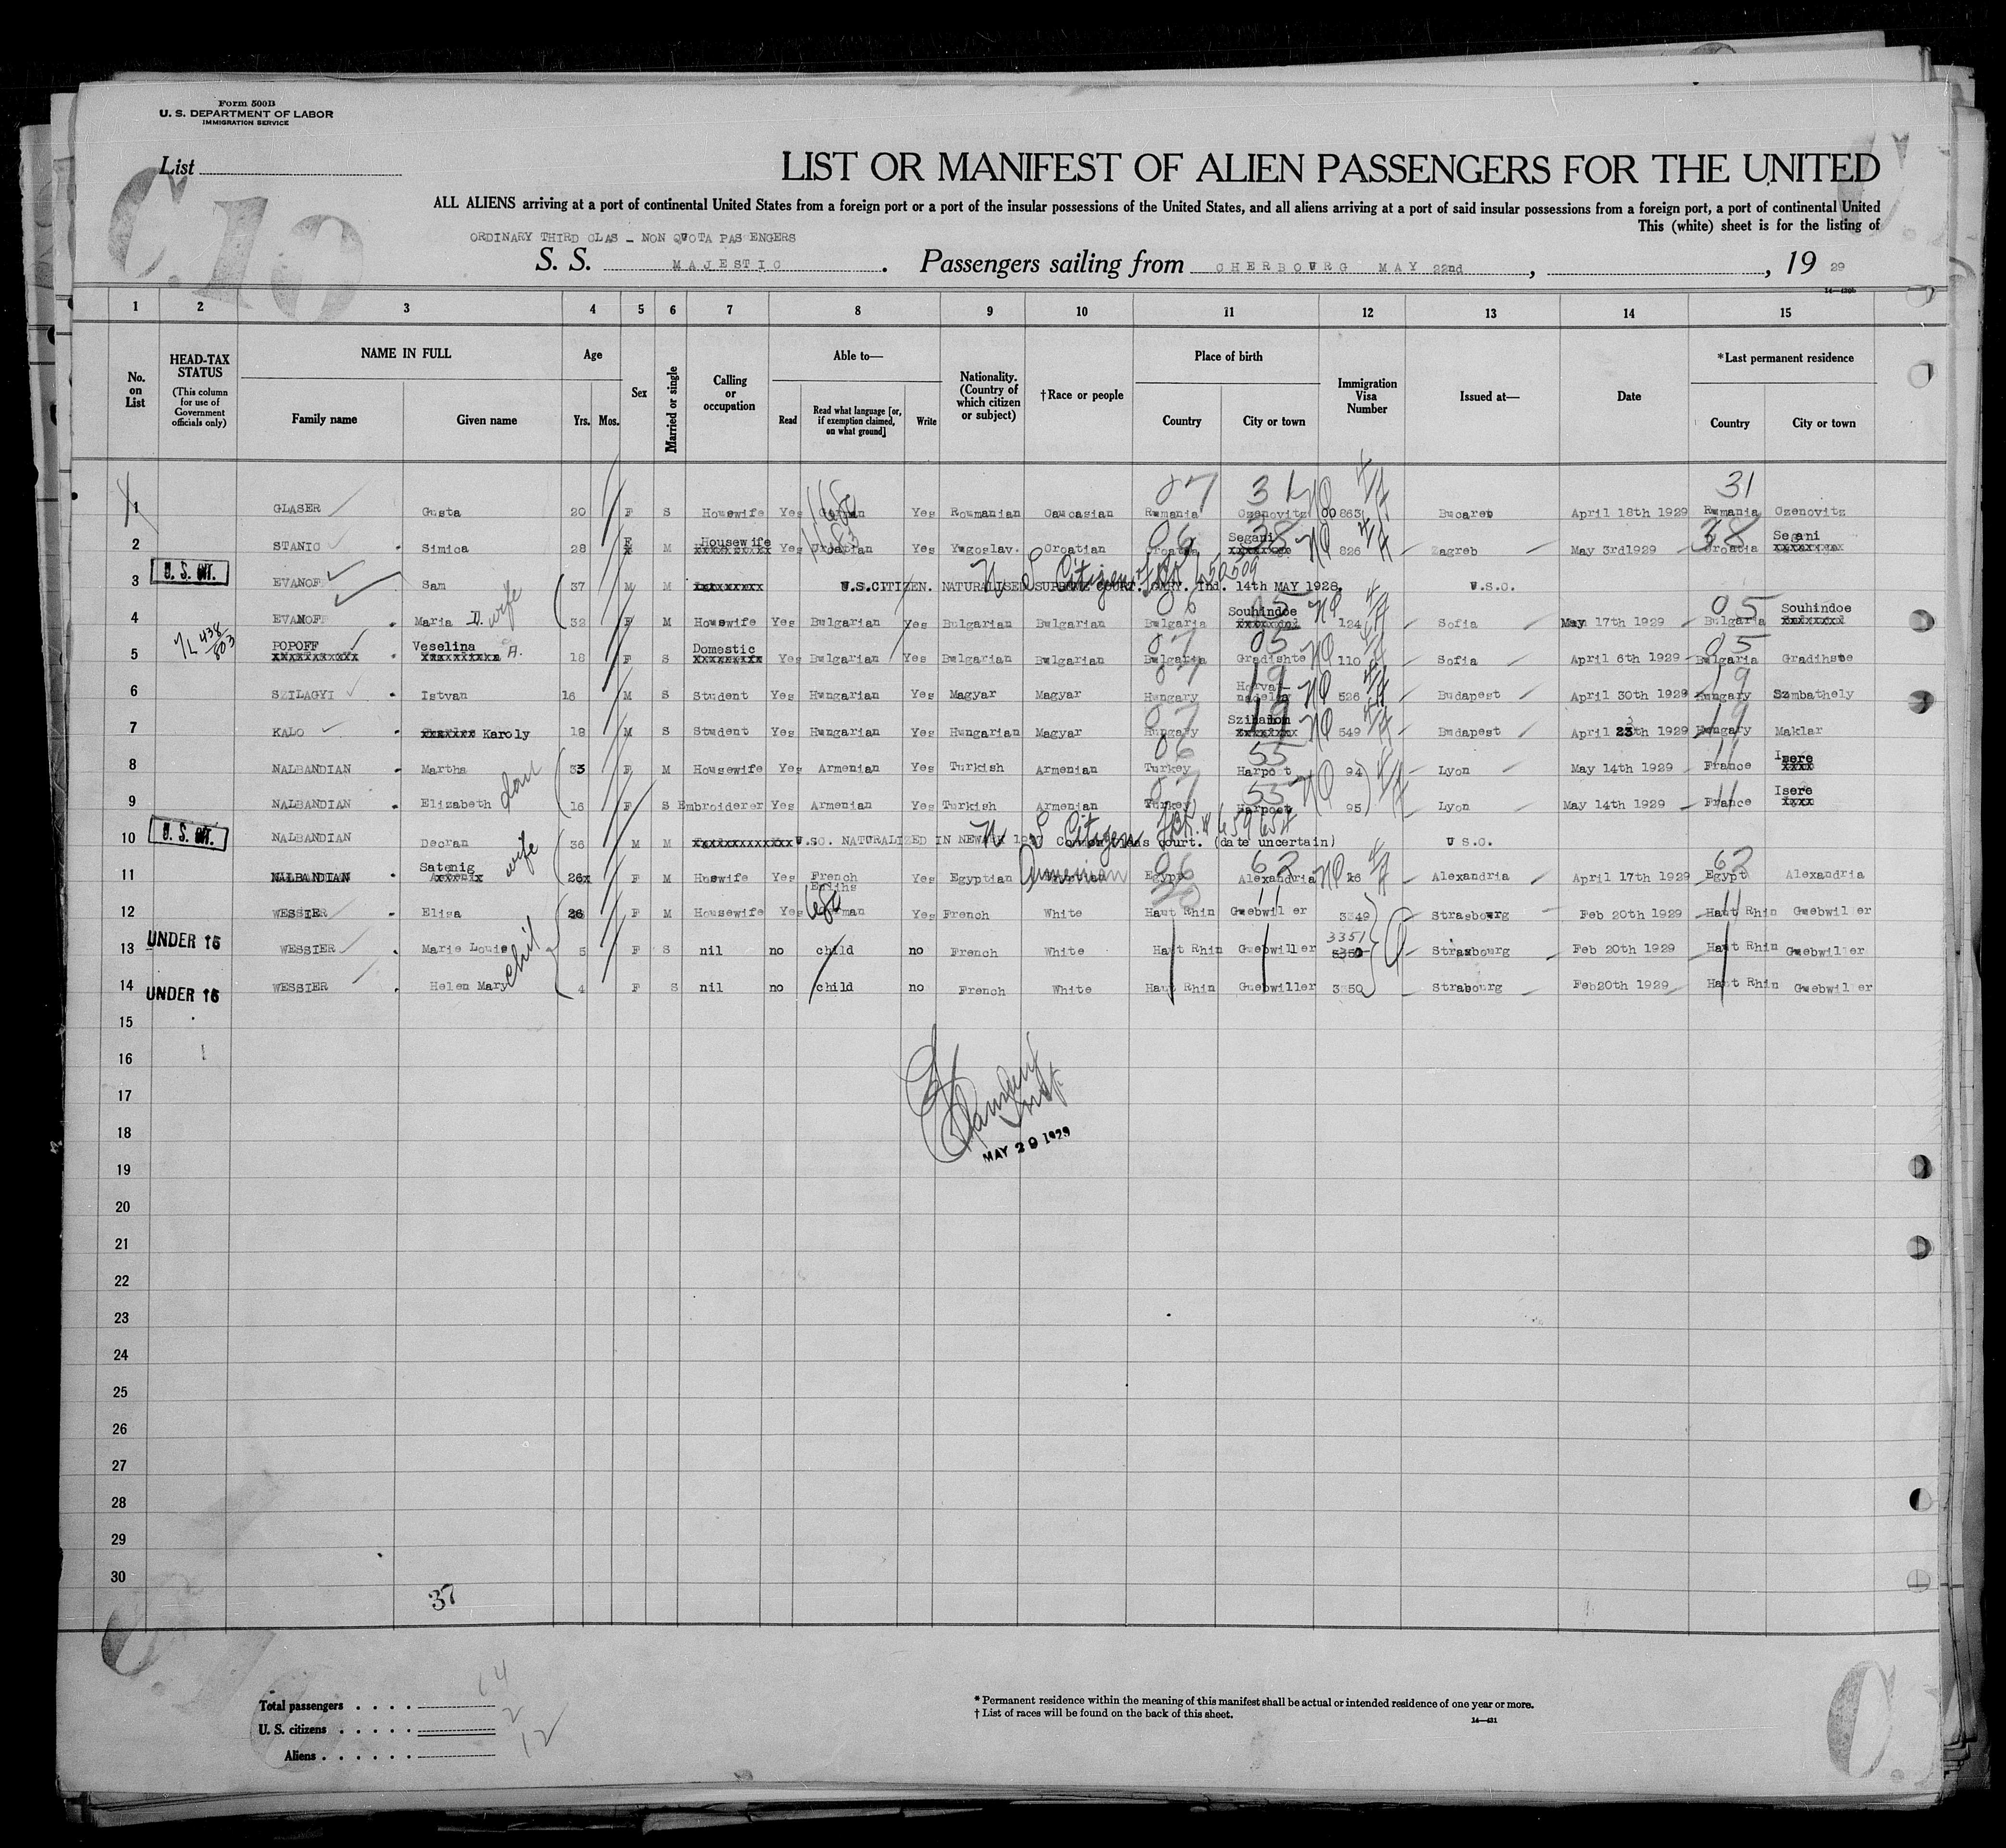 Form 500B
U. S. DEPARTMENT OF LABOR
IMMIGRATION SERVICE
List
LIST OR MANIFEST OF ALIEN PASSENGERS FOR THE UNITED
ALL ALIENS arriving at a port of continental United States from a foreign port or a port of the insular possessions of the United States, and all aliens arriving at a port of said insular possessions from a foreign port, a port of continental United
This (white) sheet is for the listing of
ORDINARY THIRD CLAS – NON QUOTA PASENGERS
S. S. MAJESTIC. Passengers sailing from CHERBOURG MAY 22nd, , 19 29
1 2 3 4 5 6 7 8 9 10 11 12 13 14 15
No. on List
HEAD-TAX STATUS (This column for use of Government officials only)
NAME IN FULL Family name Given name
Age Yrs. Mos.
Sex
Married or single
Calling or occupation
Able to— Read Read what language [or, if exemption claimed, on what ground] Write
Nationality. (Country of which citizen or subject)
†Race or people
Place of birth Country City or town
Immigration Visa Number
Issued at—
Date
*Last permanent residence Country City or town
1 GLASER Gusta 20 F S Housewife Yes German Yes Roumanian Caucasian 07 Rumania 31 Ozenovitz NQ 863 Bucarest April 18th 1929 31 Rumania Ozenovitz
2 STANIC Simica 28 F M Housewife Yes Croatian Yes Yugoslav. Croatian 06 Croatia 38 Segani NQ 826 Zagreb May 3rd1929 38 Croatia Segani
U. S. CIT.
3 EVANOF Sam 37 M M U.S.CITIZEN. NATURALISED SUPREME COURT. GARY. Ind. 14th MAY 1928. U.S.C.
4 EVANOFF Maria D. wife 32 F M Housewife Yes Bulgarian Yes Bulgarian Bulgarian 06 Bulgaria 05 Souhindoe NQ 124 Sofia May 17th 1929 05 Bulgaria Souhindoe
5 POPOFF Veselina A. 18 F S Domestic Yes Bulgarian Yes Bulgarian Bulgarian 07 Bulgaria 05 Gradishte NQ 110 Sofia April 6th 1929 05 Bulgaria Gradihste
6 SZILAGYI Istvan 16 M S Student Yes Hungarian Yes Magyar Magyar 07 Hungary 19 NQ 526 Budapest April 30th 1929 19 Hungary Szmbathely
7 KALO Karoly 18 M S Student Yes Hungarian Yes Hungarian Magyar 07 Hungary 19 Szihalom NQ 549 Budapest April 23th 1929 Hungary Maklar
8 NALBANDIAN Martha 33 F M Housewife Yes Armenian Yes Turkish Armenian 06 Turkey 55 Harpoot 94 Lyon May 14th 1929 11 France Isere
9 NALBANDIAN Elizabeth dau 16 F S Embroiderer Yes Armenian Yes Turkish Armenian 07 Turkey 55 Harpoot NQ 95 Lyon May 14th 1929 11 France Isere
U. S. CIT.
10 NALBANDIAN Decran 36 M M U.SC. NATURALIZED IN NEWARK court. (date uncertain) U S.C.
11 NALBANDIAN Satenig wife 26 F M Huswife Yes French Yes Egyptian Armenian 06 Egypt 62 Alexandria NQ 16 Alexandria April 17th 1929 62 Egypt Alexandria
12 WESSIER Elisa 26 F M Housewife Yes German Yes French White Haut Rhin Guebwil er 3349 Strasbourg Feb 20th 1929 Haut Rhin Guebwil er
UNDER 16
13 WESSIER Marie Louis 5 F S nil no child no French White Haut Rhin Guebwiller 3351 Strasbourg Feb 20th 1929 Haut Rhin Guebwiller
UNDER 16
14 WESSIER Helen Mary 4 F S nil no child no French White Haut Rhin Guebwiller 3350 Strabourg Feb20th 1929 Haut Rhin Guebwil er
15
16
17
MAY 29 1929
18
19
20
21
22
23
24
25
26
27
28
29
30
37
Total passengers . . . . 14
U. S. citizens . . . . . 2
Aliens . . . . . . 12
* Permanent residence within the meaning of this manifest shall be actual or intended residence of one year or more.
† List of races will be found on the back of this sheet.
14—431